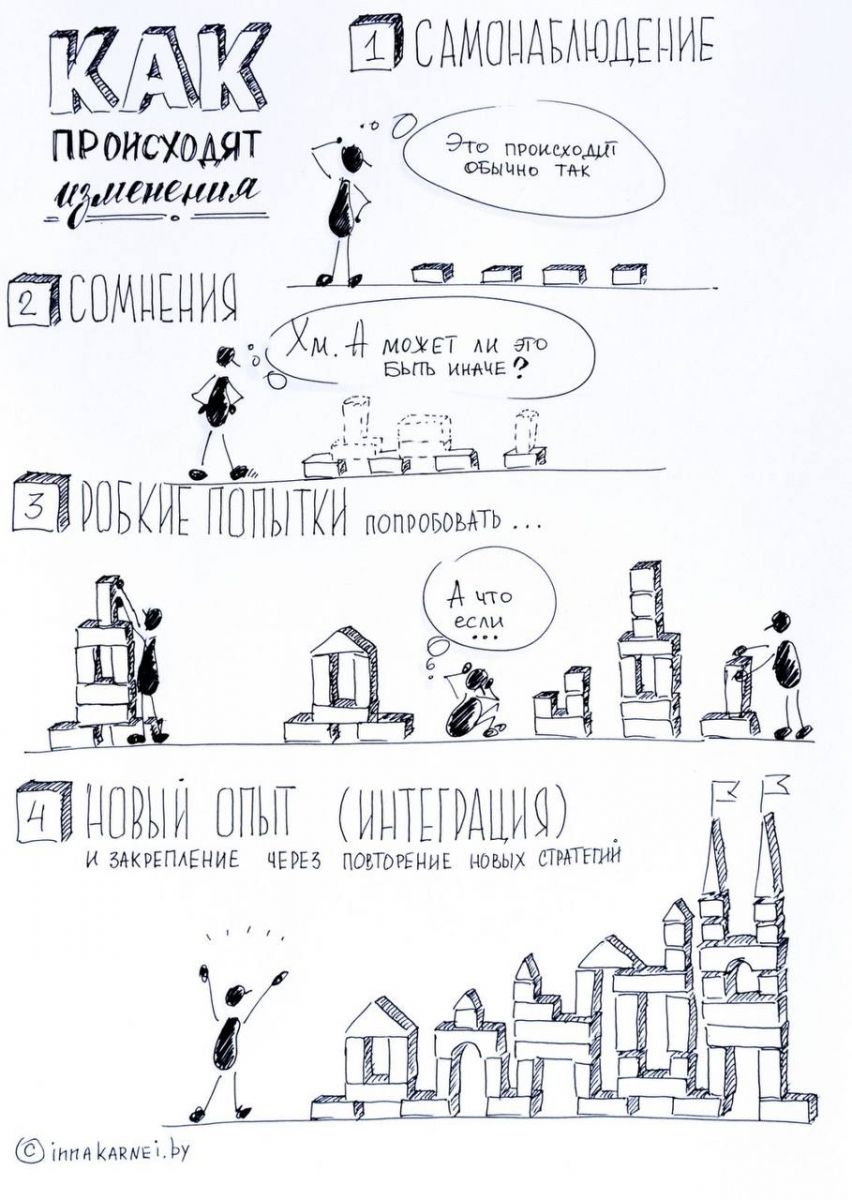 КАК
ПРОИСХОДЯТ
изменения
1 САМОНАБЛЮДЕНИЕ
Это происходит
обычно так
2 СОМНЕНИЯ
Хм. А может ли это
быть иначе?
3 РОБКИЕ ПОПЫТКИ ПОПРОБОВАТЬ ...
А что
если
...
4 НОВЫЙ ОПЫТ (ИНТЕГРАЦИЯ)
И ЗАКРЕПЛЕНИЕ ЧЕРЕЗ ПОВТОРЕНИЕ НОВЫХ СТРАТЕГИЙ
© innakarnei.by